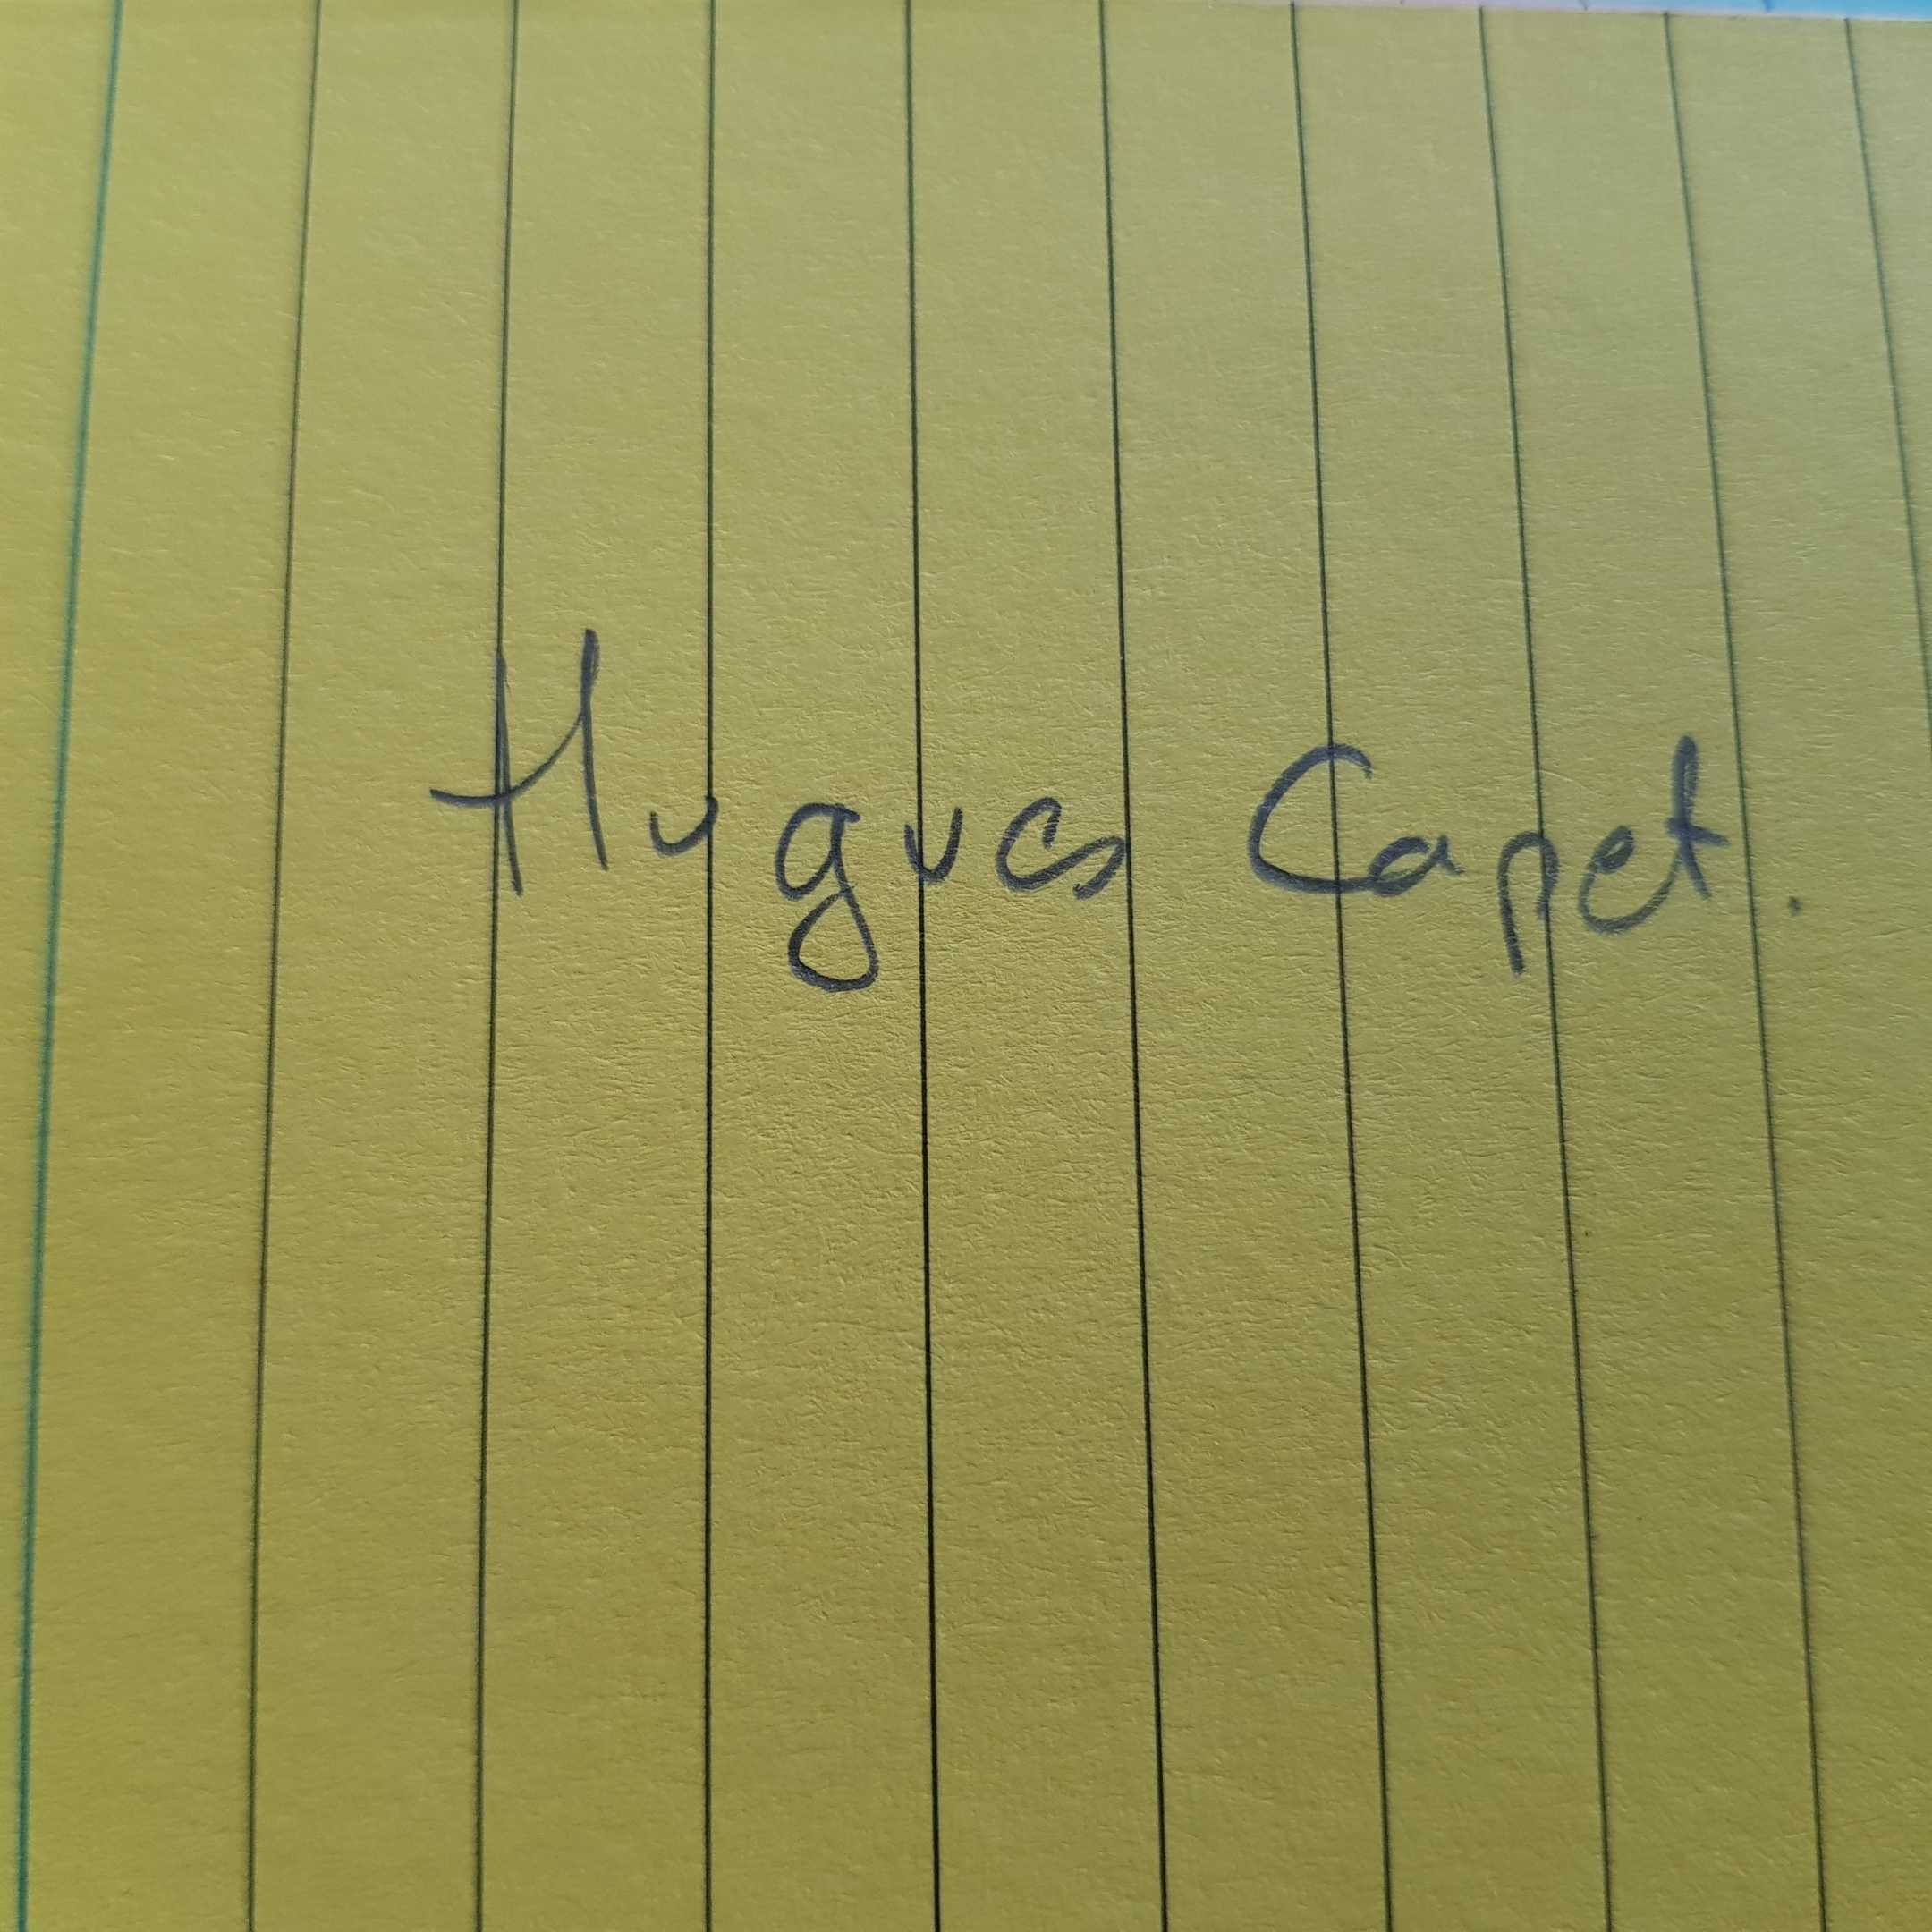 Hugues Capet.